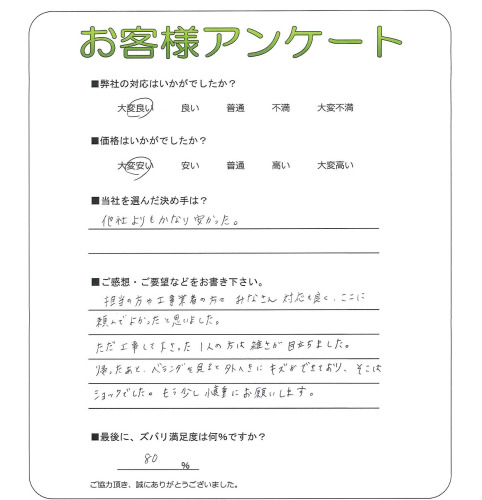 お客様アンケート
■弊社の対応はいかがでしたか？
大変良い 良い 普通 不満 大変不満
■価格はいかがでしたか？
大変安い 安い 普通 高い 大変高い
■当社を選んだ決め手は？
他社よりもかなり安かった。
■ご感想・ご要望などをお書き下さい。
担当の方や工事業者の方も みなさん 対応も良く、ここに
頼んでよかったと思いました。
ただ工事して下さった 1人の方は 雑さが目立ちました。
帰ったあと、ベランダを見ると外へきに キズができており、そこは
ショックでした。もう少し慎重にお願いします。
■最後に、ズバリ満足度は何％ですか？
80 %
ご協力頂き、誠にありがとうございました。